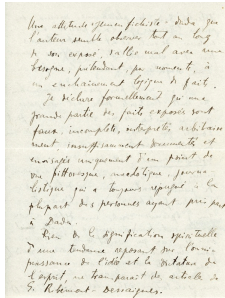 Une attitude je m'enfichiste - Dada, que
l'auteur semble observer tout au long
de son exposé, rallie mal avec une
besogne, prétendant, par moments, à
un enchaînement logique de faits.
Je déclare formellement qu'une
grande partie des faits exposés sont
faux, incomplets, interprétés arbitraire-
ment, insuffisamment documentés et
envisagés uniquement d'un point de
vue pittoresque, anecdotique, journa-
listique qui a toujours répugné à la
plupart des personnes ayant pris part
à Dada.
Rien de la signification spirituelle
d'une tendance reposant sur l'omni-
puissance de l'idée et la dictature de
l'esprit, ne transparaît de l'article de
G. Ribemont-Dessaignes.